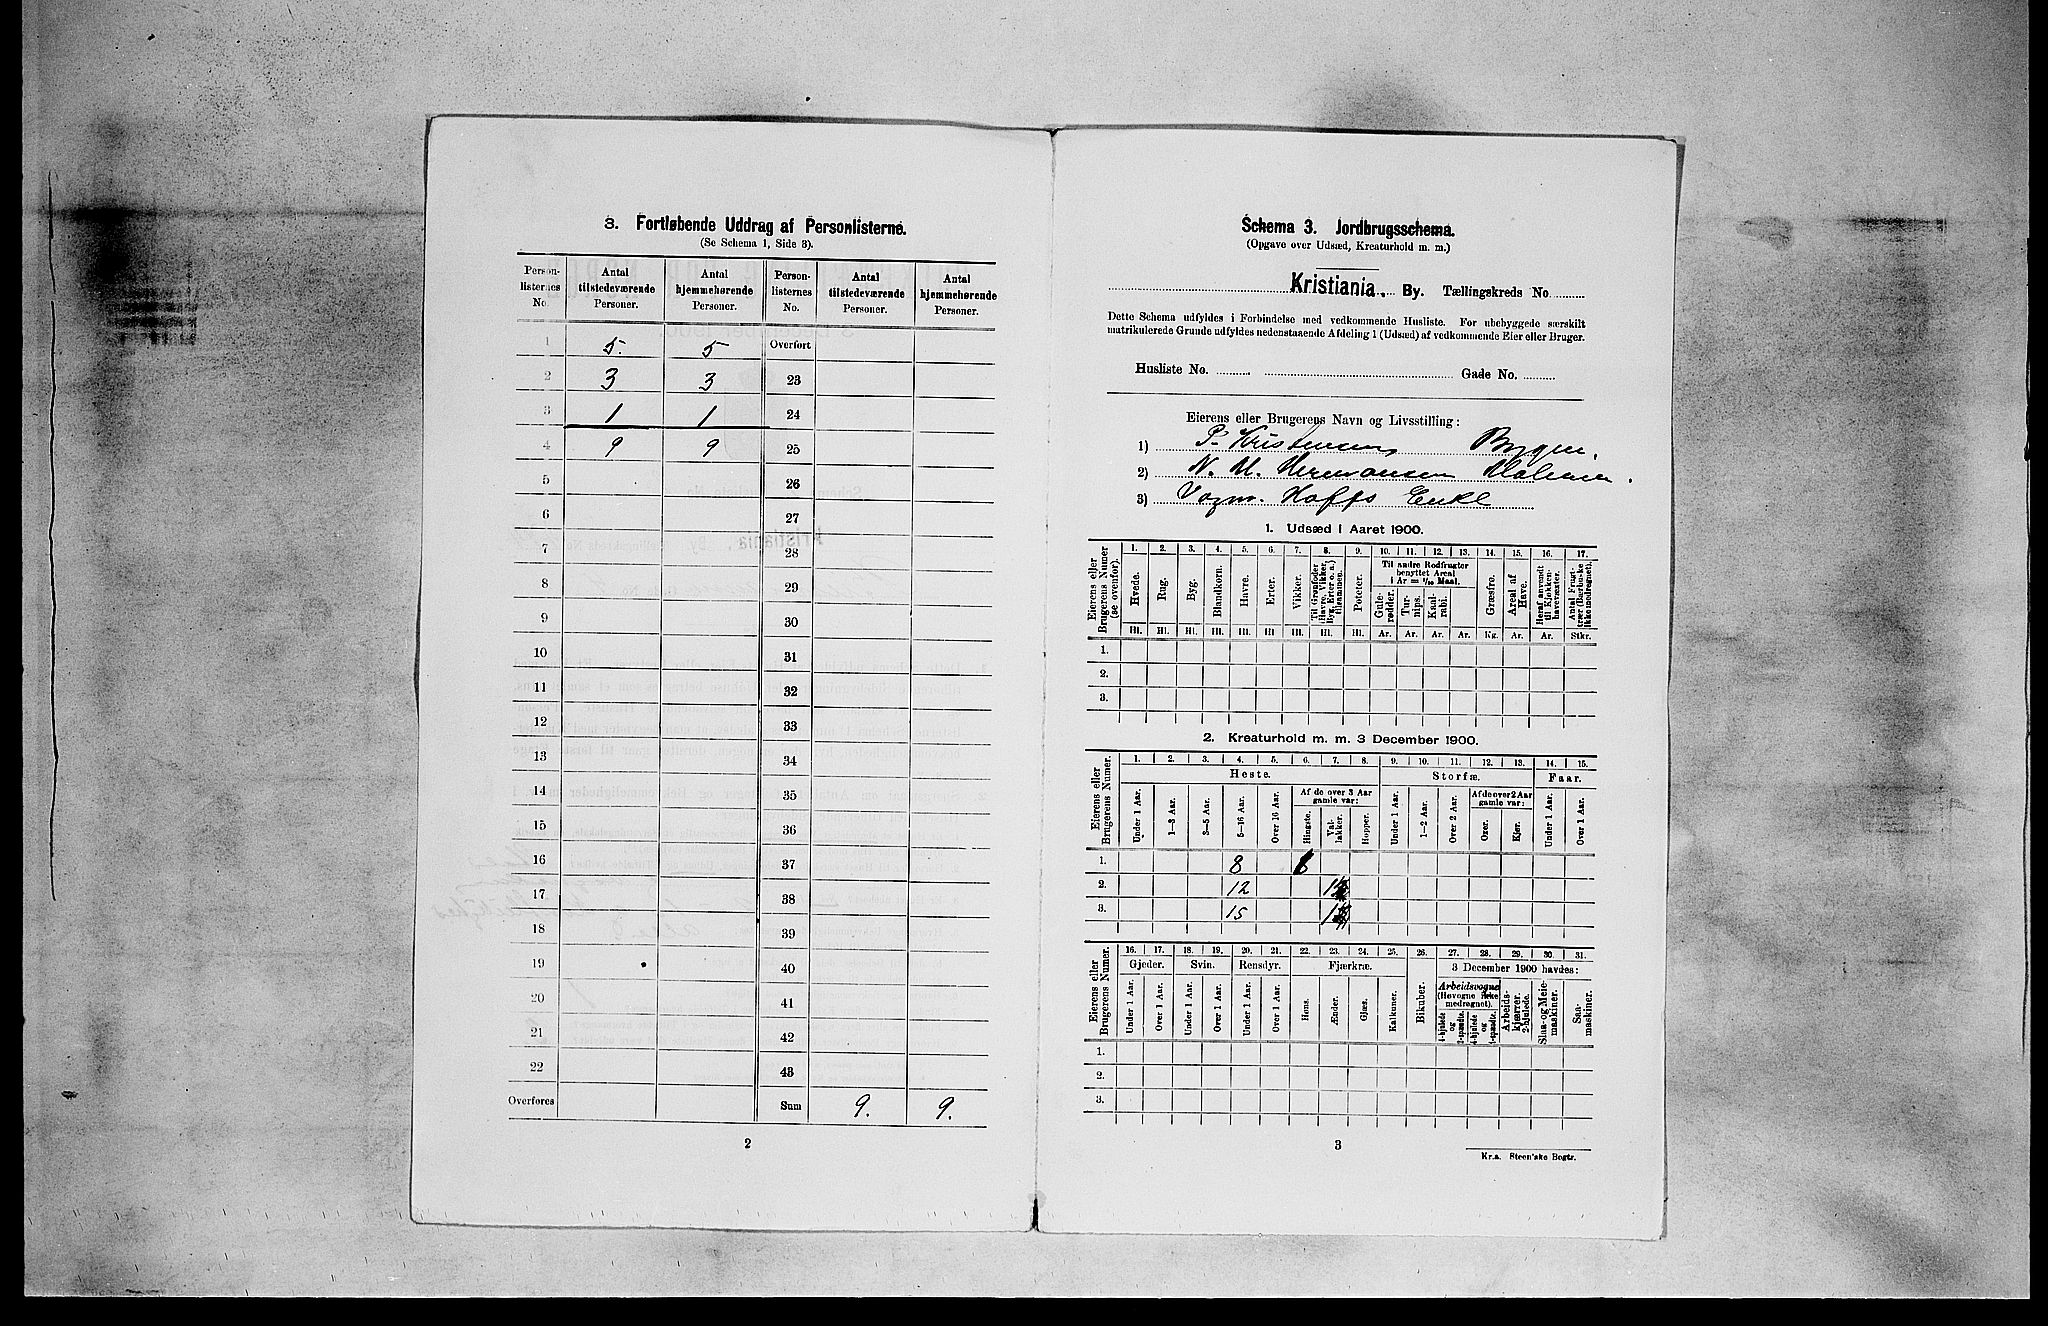 3. Fortløbende Uddrag af Personlisterne.
(Se Schema 1, Side 3).
Person-listernes No. | Antal tilstedeværende Personer. | Antal hjemmehørende Personer. | Person-listernes No. | Antal tilstedeværende Personer. | Antal hjemmehørende Personer.
1 | 5. | 5 | Overført
2 | 3 | 3 | 23
3 | 1 | 1 | 24
4 | 9 | 9 | 25
5 | 26
6 | 27
7 | 28
8 | 29
9 | 30
10 | 31
11 | 32
12 | 33
13 | 34
14 | 35
15 | 36
16 | 37
17 | 38
18 | 39
19 | 40
20 | 41
21 | 42
22 | 43
Overføres | Sum | 9. | 9.
2
Schema 3. Jordbrugsschema.
(Opgave over Udsæd, Kreaturhold m. m.)
Kristiania. By. Tællingskreds No.
Dette Schema udfyldes i Forbindelse med vedkommende Husliste. For ubebyggede særskilt
matrikulerede Grunde udfyldes nedenstaaende Afdeling 1 (Udsæd) af vedkommende Eier eller Bruger.
Husliste No. Gade No.
Eierens eller Brugerens Navn og Livsstilling:
1) P. Kristensen
2) N. M. Hermansen
3) Vogm. Hoffs Enke
1. Udsæd i Aaret 1900.
Eierens eller Brugerens Numer (se ovenfor). | 1. | 2. | 3. | 4. | 5. | 6. | 7. | 8. | 9. | 10. | 11. | 12. | 13. | 14. | 15. | 16. | 17.
Hvede. | Rug. | Byg. | Blandkorn. | Havre. | Erter. | Vikker. | Til Grønfoder (Havre, Vikker, Byg, Erter o. a.) tilsammen. | Poteter. | Til andre Rodfrugter benyttet Areal i Ar = 1/10 Maal. | Gule-rødder. | Tur-nips. | Kaal-rabi. | Græsfrø. | Areal af Have. | Heraf anvendt til Kjøkken-havevæxter. | Antal Frugt-træer (Bærbuske ikke medregnet).
Hl. | Hl. | Hl. | Hl. | Hl. | Hl. | Hl. | Hl. | Hl. | Ar. | Ar. | Ar. | Ar. | Kg. | Ar. | Ar. | Stkr.
1.
2.
3.
2. Kreaturhold m. m. 3 December 1900.
Eierens eller Brugerens Numer. | 1. | 2. | 3. | 4. | 5. | 6. | 7. | 8. | 9. | 10. | 11. | 12. | 13. | 14. | 15.
Heste. | Storfæ. | Faar.
Under 1 Aar. | 1—3 Aar. | 3—5 Aar. | 5—16 Aar. | Over 16 Aar. | Af de over 3 Aar gamle var: | Hingste. | Val-lakker. | Hopper. | Under 1 Aar. | 1—2 Aar. | Over 2 Aar. | Af de over 2 Aar gamle var: | Oxer. | Kjør. | Under 1 Aar. | Over 1 Aar.
1. | 8
2. | 12
3. | 15
Eierens eller Brugerens Numer. | 16. | 17. | 18. | 19. | 20. | 21. | 22. | 23. | 24. | 25. | 26. | 27. | 28. | 29. | 30. | 31.
Gjeder. | Svin. | Rensdyr. | Fjærkræ. | 3 December 1900 havdes:
Under 1 Aar. | Over 1 Aar. | Under 1 Aar. | Over 1 Aar. | Under 1 Aar. | Over 1 Aar. | Høns. | Ænder. | Gjæs. | Kalkuner. | Bikuber. | Arbeidsvogne (Høvogne ikke medregnet). | 4-hjulede og 2-spændte. | 4-hjulede og 1-spændte. | Arbeids-kjærrer, 2-hjulede. | Slaa- og Meie-maskiner. | Saa-maskiner.
1.
2.
3.
3
Kr.a. Steen'ske Bogtr.